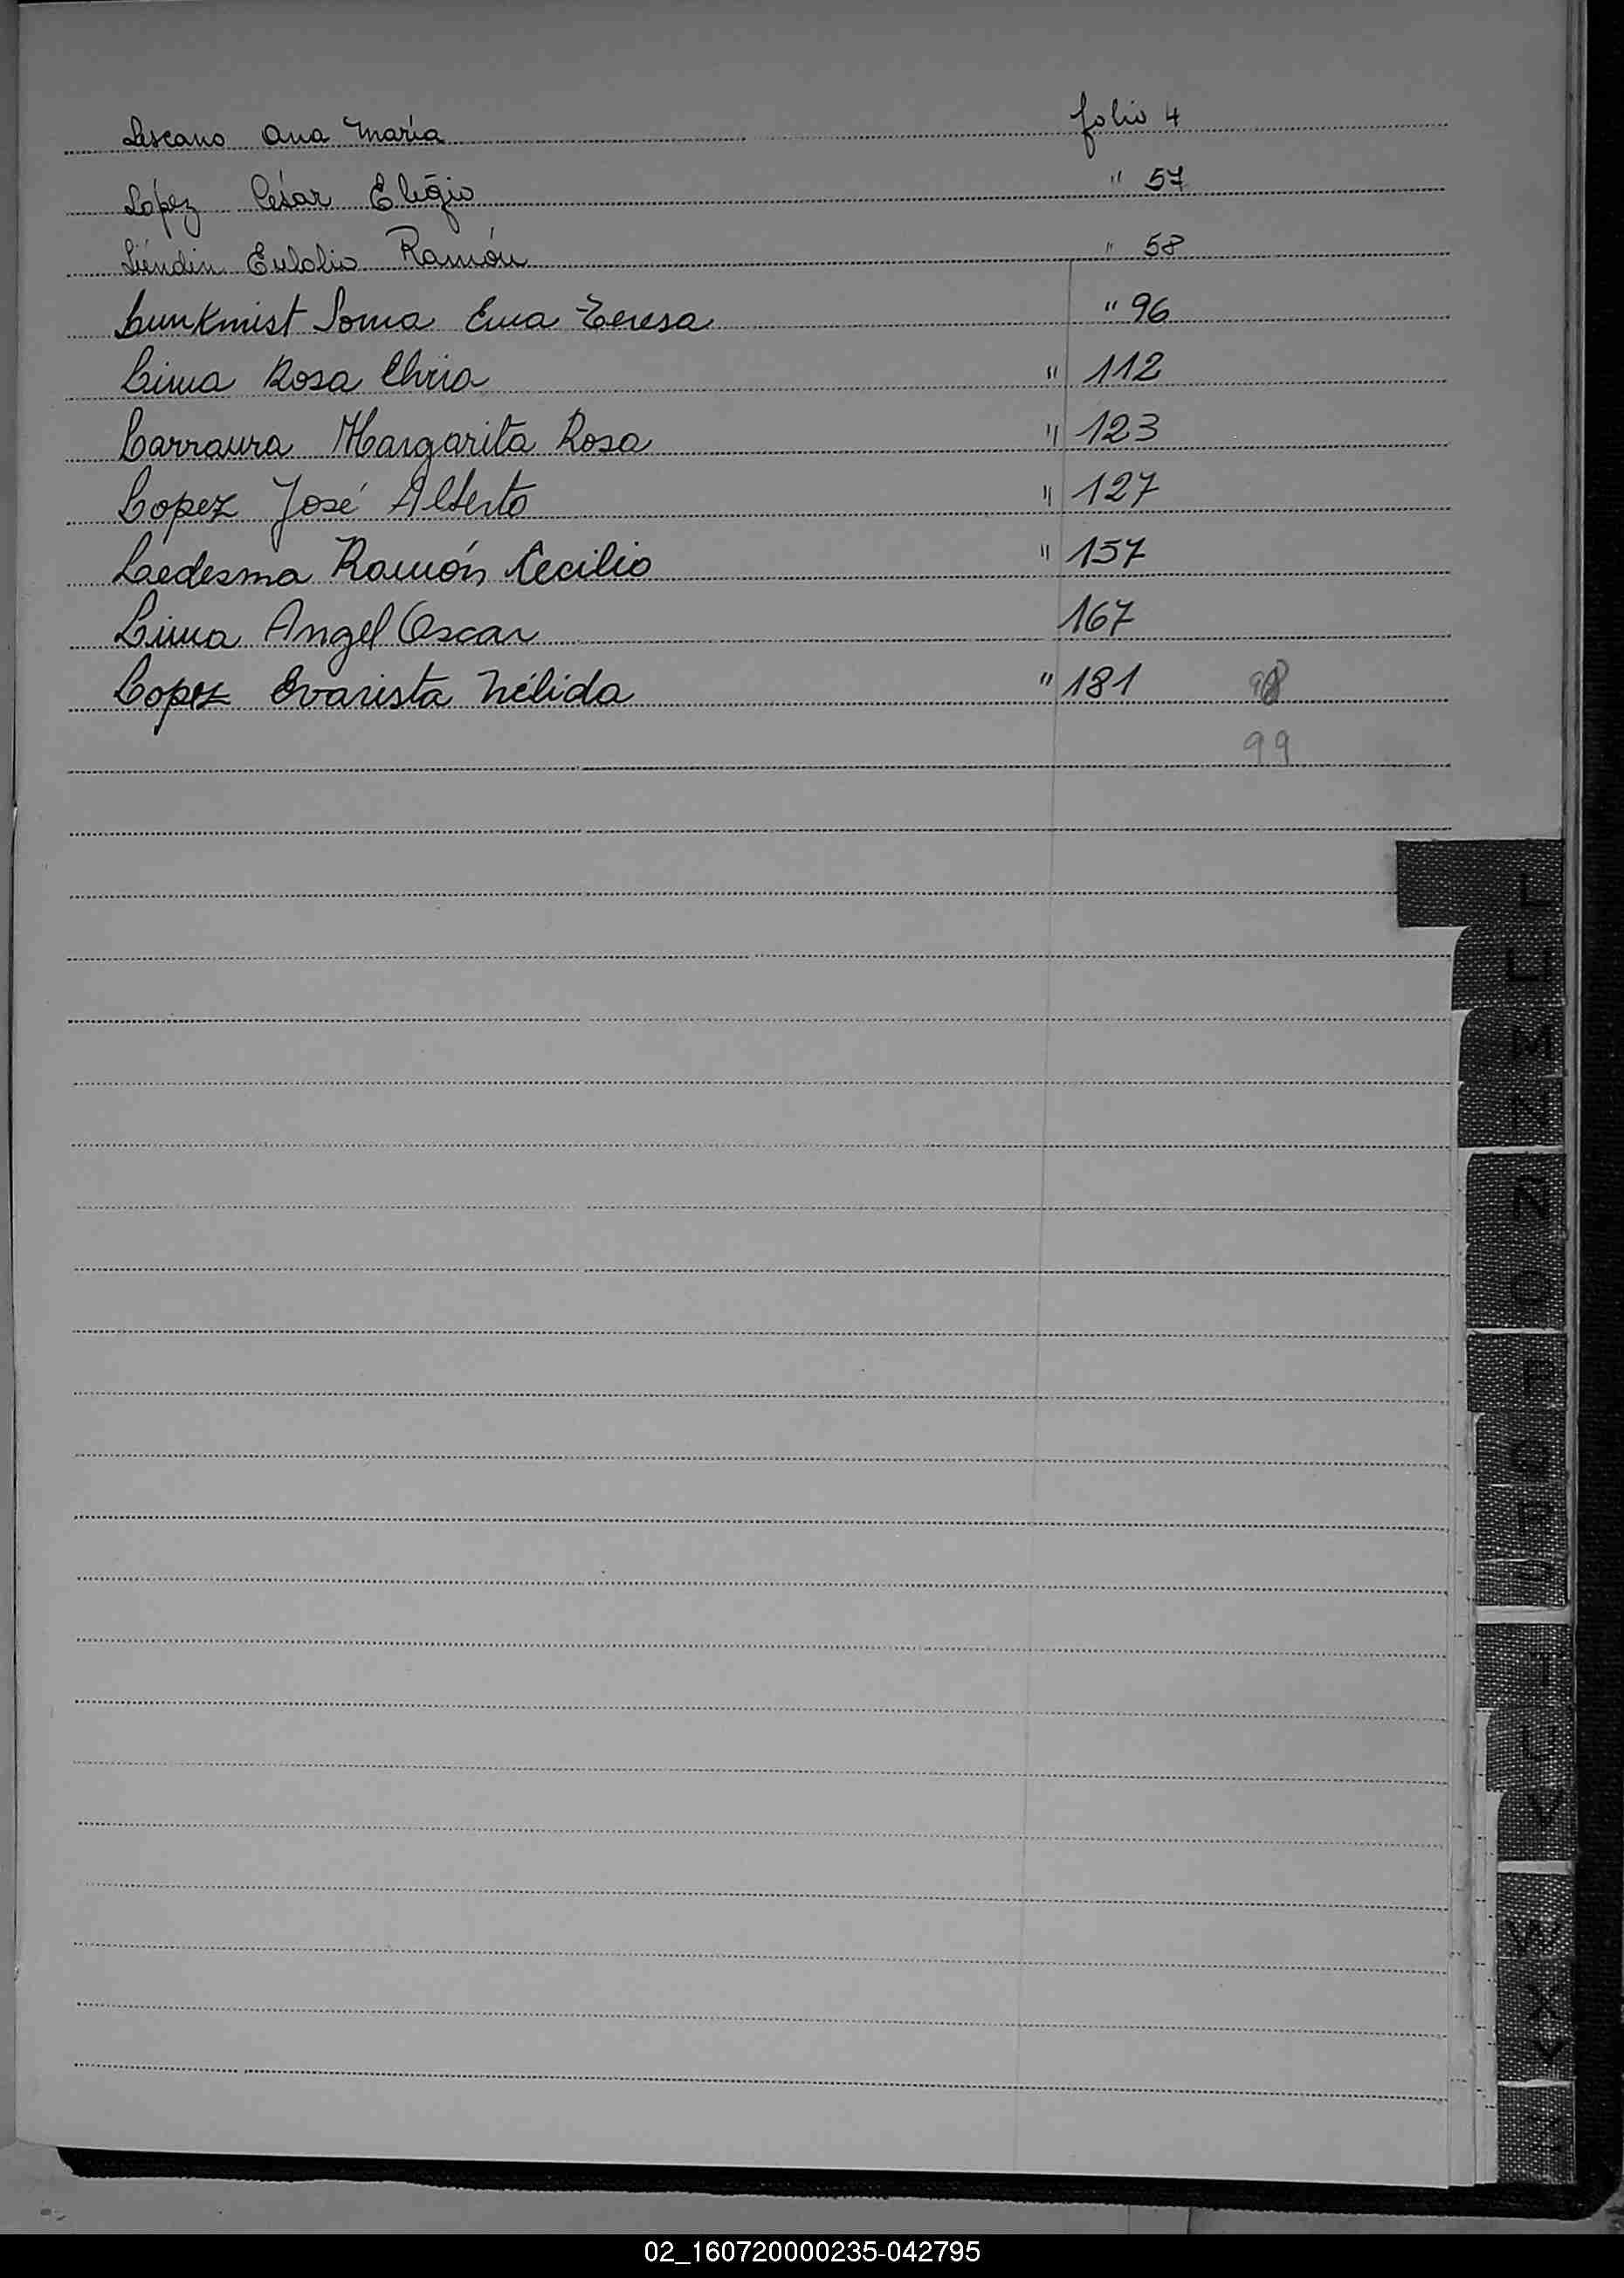 Lescano Ana María folio 4
López César Eligio " 57
Liéndin Eulolio Ramón " 58
Lunkmist Soma Ema Teresa " 96
Lima Rosa " 112
Larraura Margarita Rosa " 123
Lopez José Alberto " 127
Laedesma Ramón Cecilio " 157
Lima Angel Oscar 167
Lopez Evarista Nélida " 181 98
99
L
LL
M
N
Ñ
O
P
Q
R
S
T
U
V
W
X
Y
02_160720000235-042795